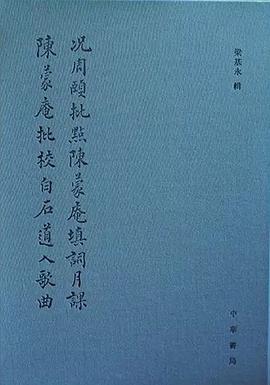 梁基永 輯
况周頤批點陳蒙庵填詞月課
陳蒙庵批校白石道人歌曲
中華書局